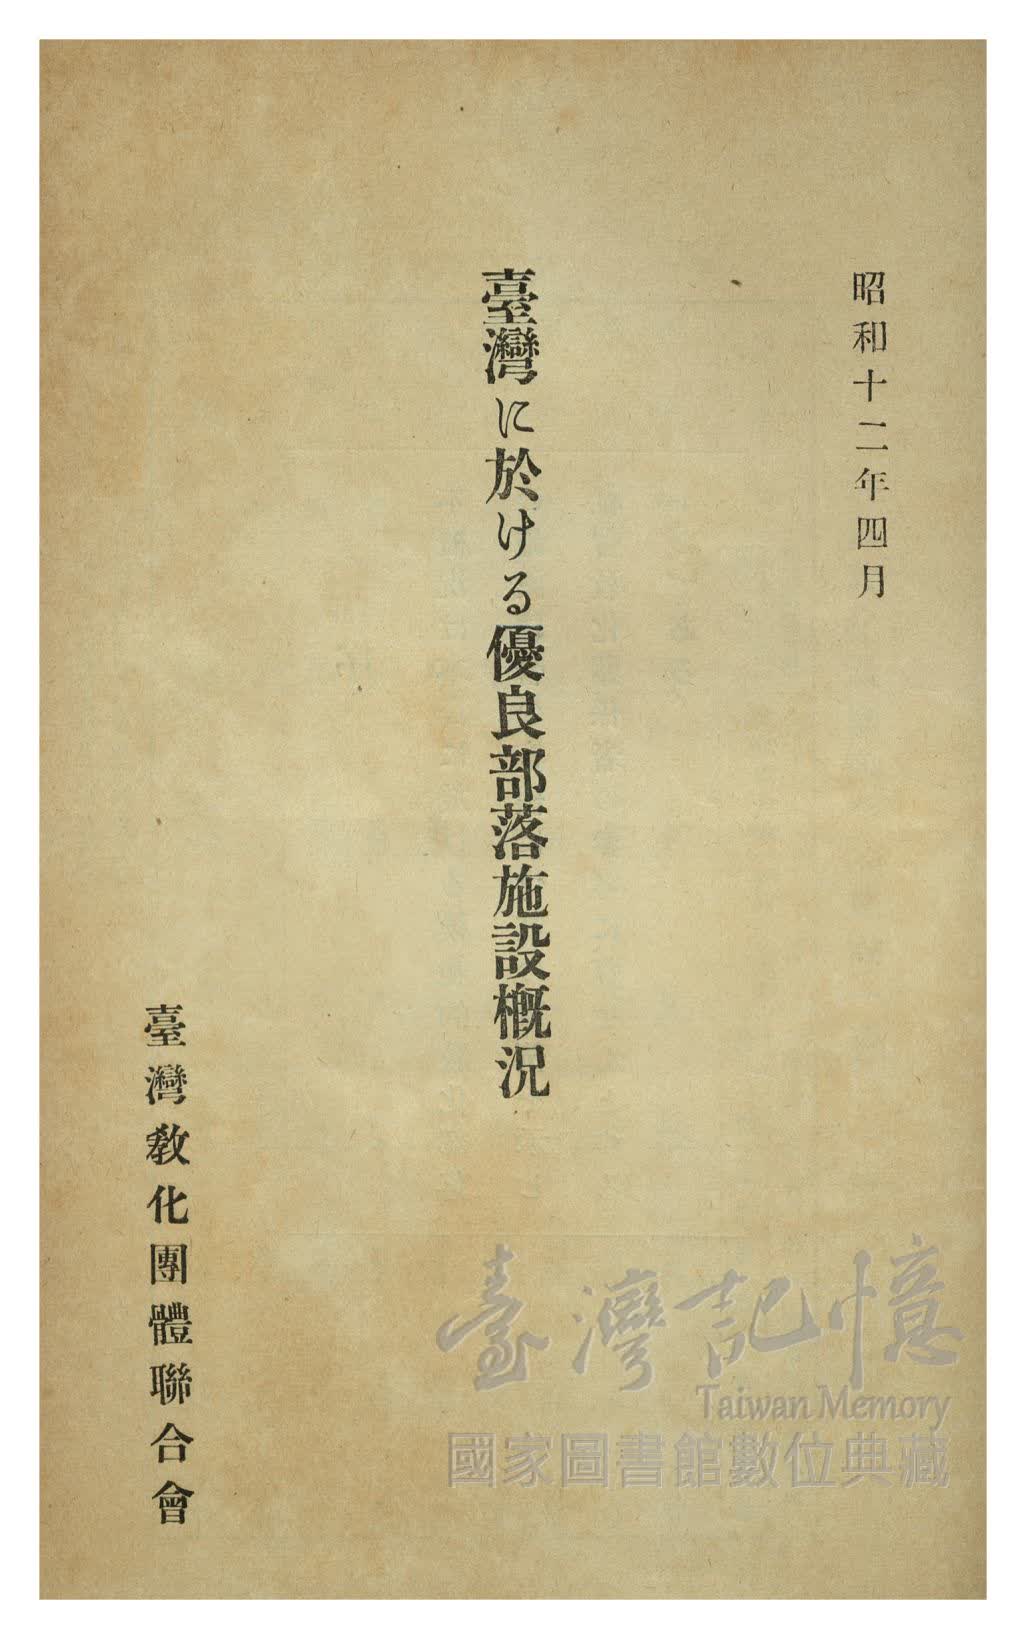 昭和十二年四月
臺灣に於ける優良部落施設概況
臺灣教化團體聯合會
臺灣記憶
Taiwan Memory
國家圖書館數位典藏